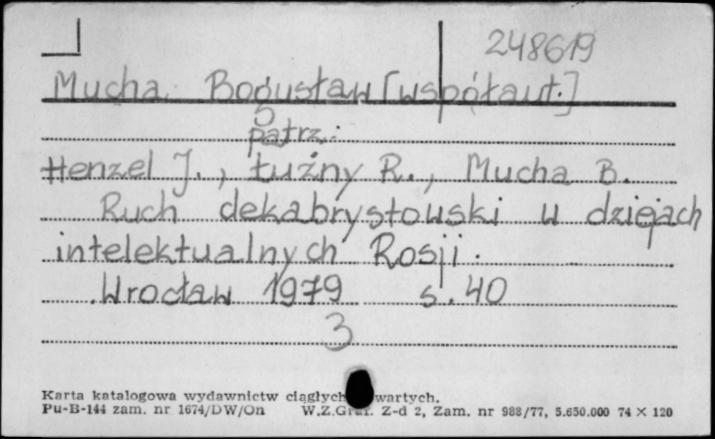 248619
Mucha Bogusław [współaut.]
patrz:
Henzel J., Łużny R., Mucha B.
Ruch dekabrystowski w dziejach
intelektualnych Rosji.
Wrocław 1979 s. 40
3
Karta katalogowa wydawnictw ciągłych wartych.
Pu-B-144 zam. nr 1674/DW/On W.Z.Graf. Z-d 2, Zam. nr 988/77, 5.650.000 74 × 120